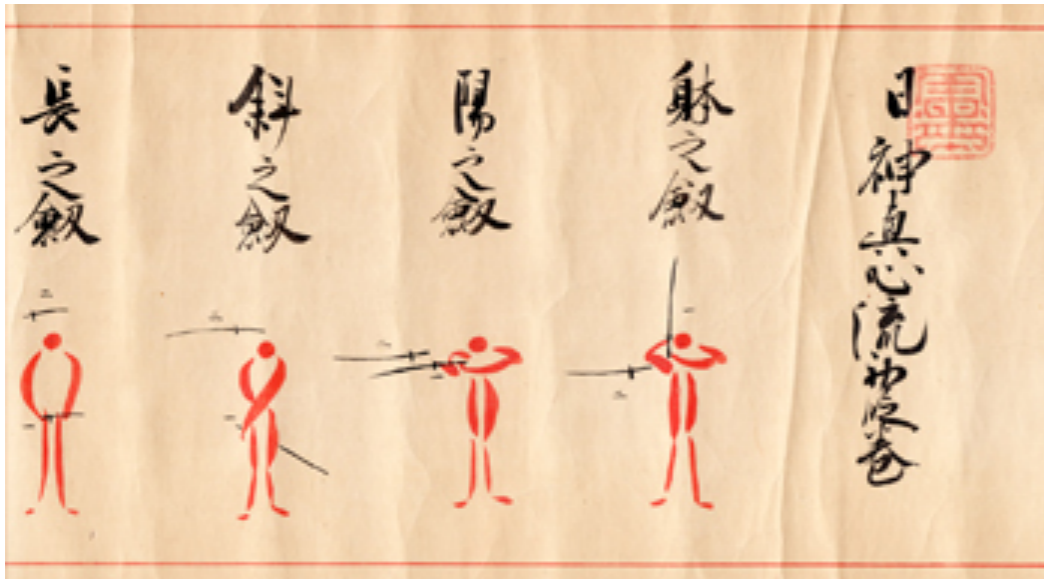 日神真心流巻
躰之劔
陽之劔
斜之劔
長之劔